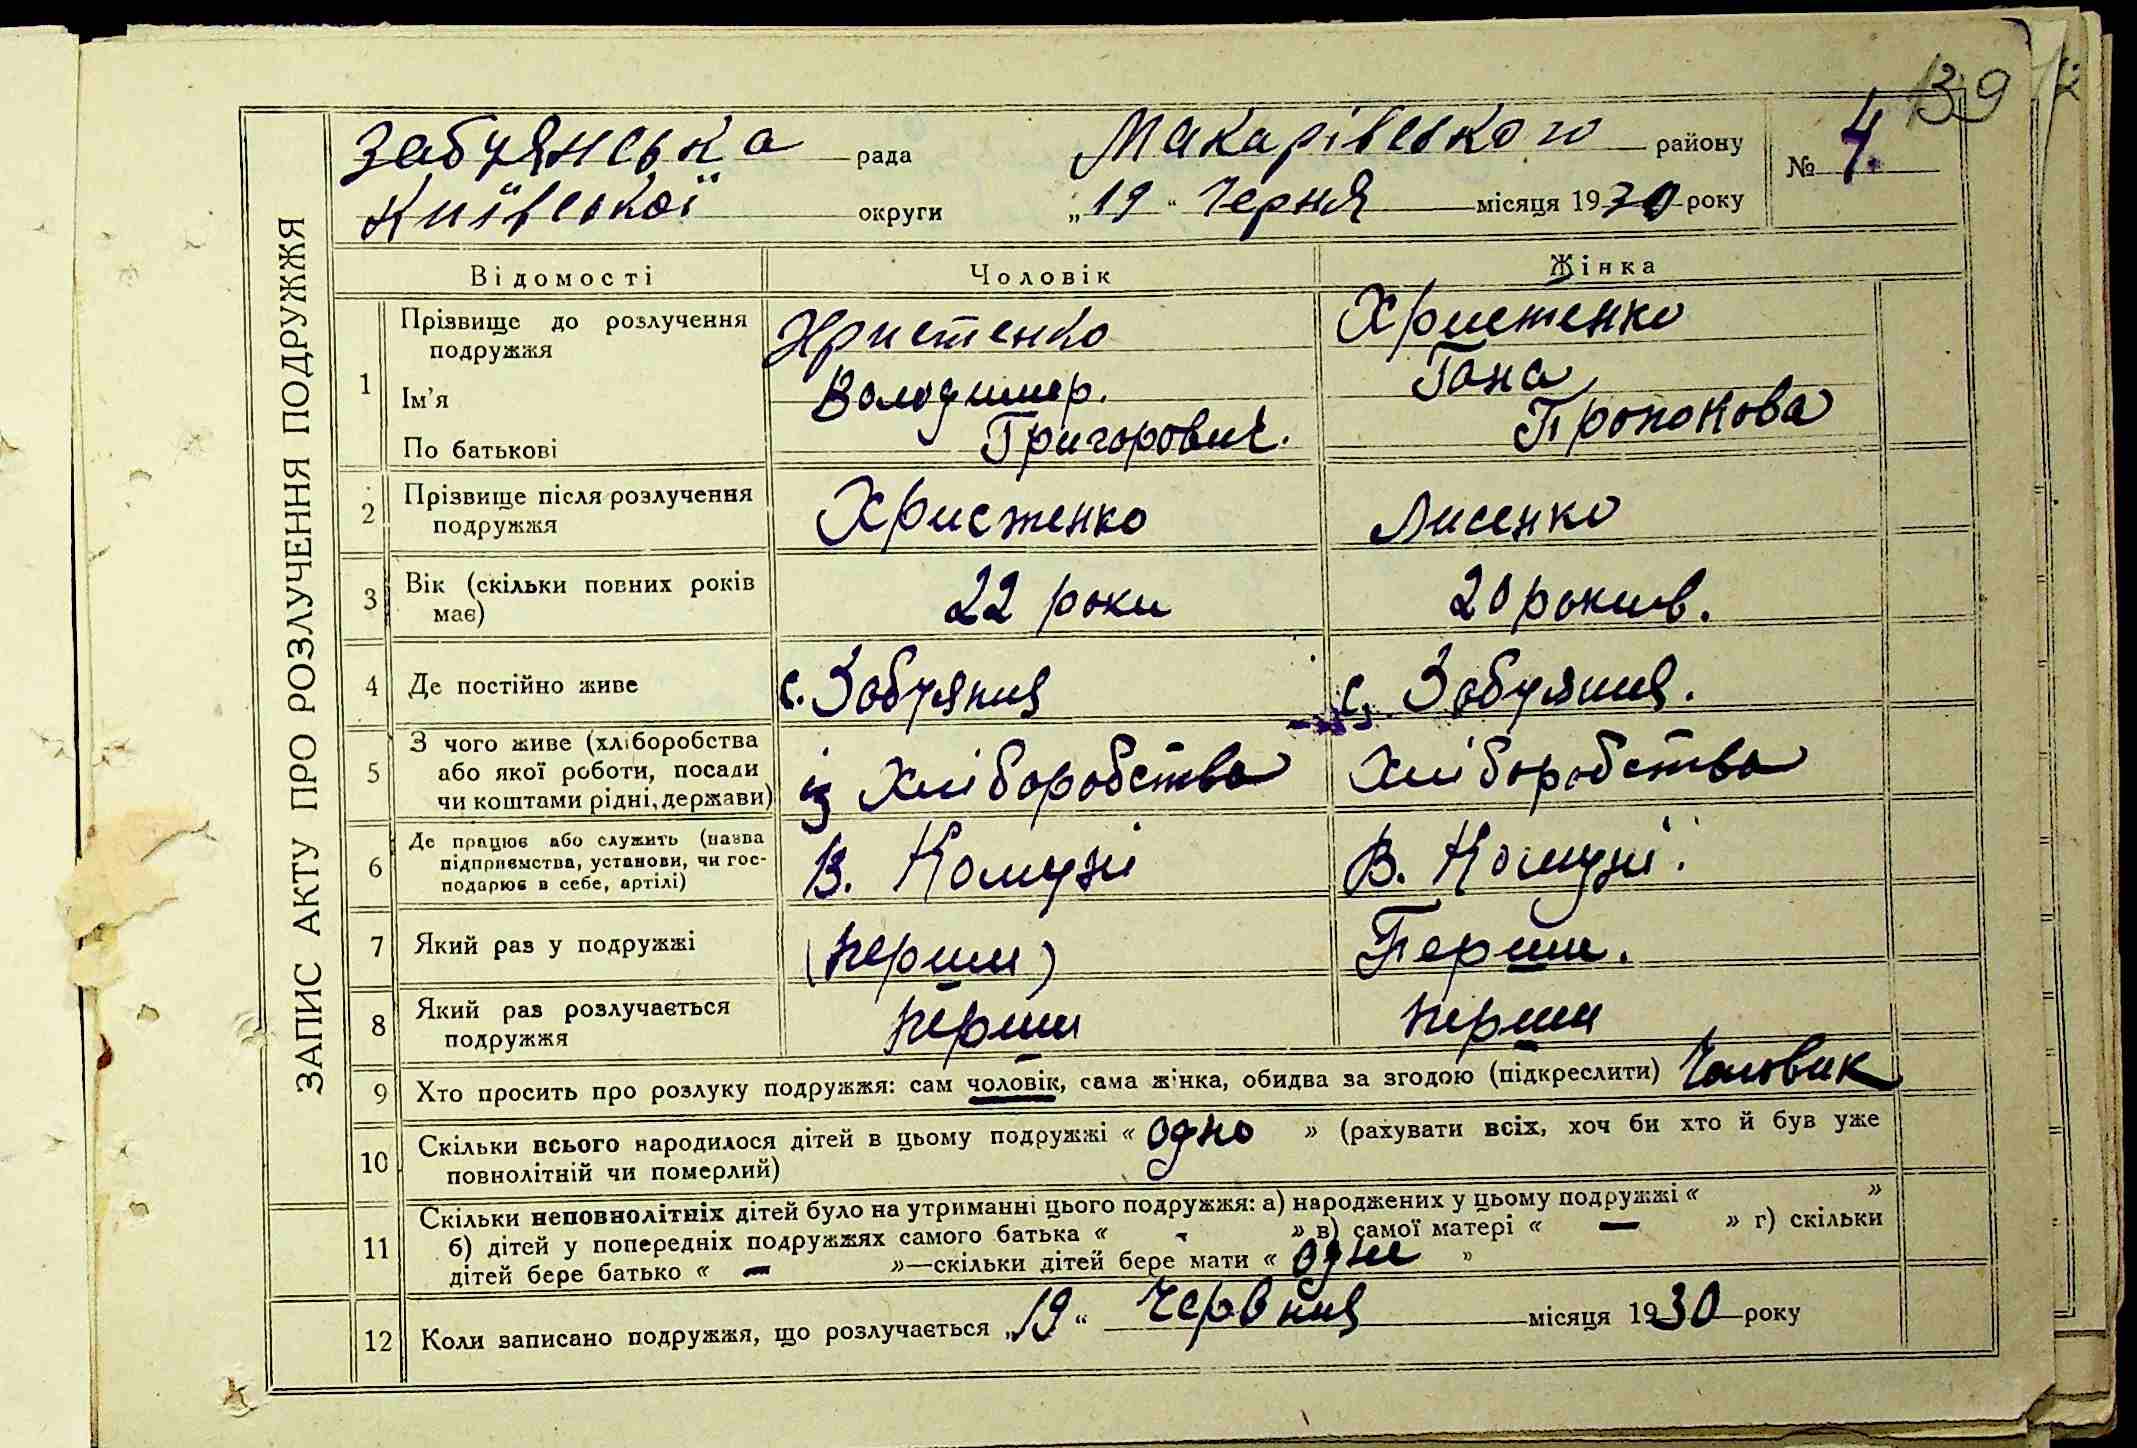 139
Забуянська рада Макарівського району № 4.
Київської округи „19“ Черня місяця 1930 року
ЗАПИС АКТУ ПРО РОЗЛУЧЕННЯ ПОДРУЖЖЯ
Відомості Чоловік Жінка
1 Прізвище до розлучення Христенко Христенко
подружжя
Ім'я Володимер. Гана
По батькові Григорович. Пропонова
2 Прізвище після розлучення Христенко Лисенко
подружжя
3 Вік (скільки повних років 22 роки 20 рокив.
має)
4 Де постійно живе с. Забуяння с. Забуяння.
5 З чого живе (хліборобства
або якої роботи, посади із хліборобства хліборобства
чи коштами рідні, держави)
6 Де працює або служить (назва
підприємства, установи, чи гос- В. Комуні В. Комуні.
подарює в себе, артілі)
7 Який раз у подружжі (перши) Перши.
8 Який раз розлучається перши перши
подружжя
9 Хто просить про розлуку подружжя: сам чоловік, сама жінка, обидва за згодою (підкреслити) Чоловик
10 Скільки всього народилося дітей в цьому подружжі « одно » (рахувати всіх, хоч би хто й був уже
повнолітній чи померлий)
11 Скільки неповнолітніх дітей було на утриманні цього подружжя: а) народжених у цьому подружжі « »
б) дітей у попередніх подружжях самого батька « - » в) самої матері « — » г) скільки
дітей бере батько « — »—скільки дітей бере мати « одне »
12 Коли записано подружжя, що розлучається „19“ Червння місяця 1930 року